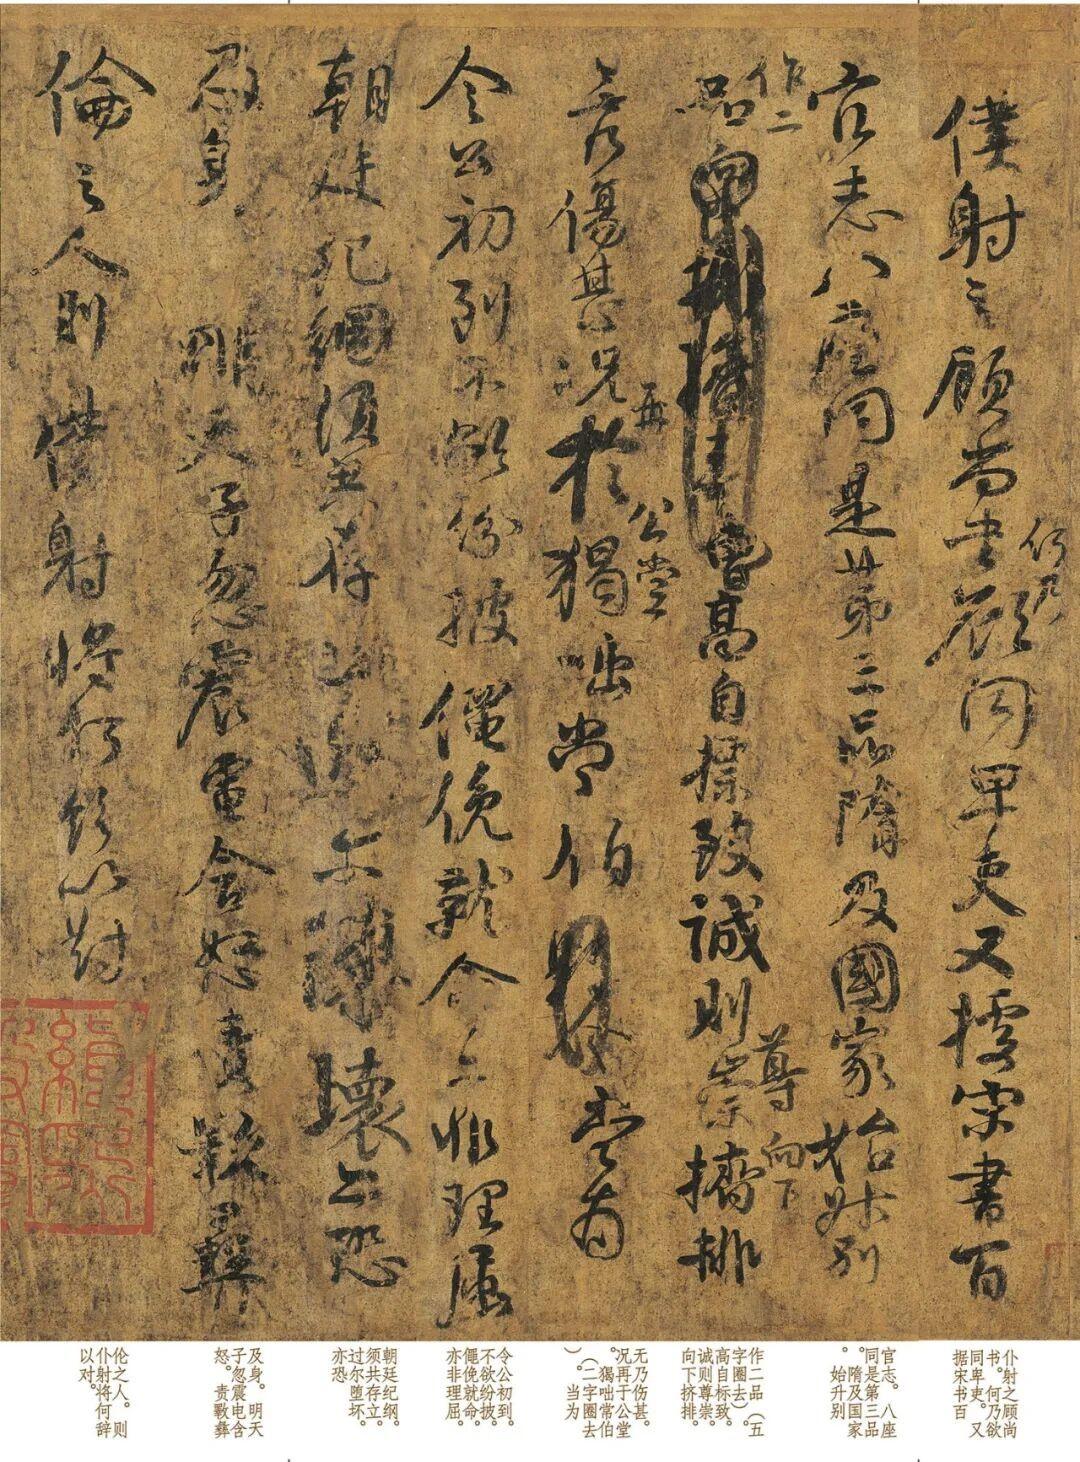 僕射之顧尚書何乃欲同卑吏又據宋書百
官志八座同是第三品隋及國家始升別
作二品高自標致誠則尊崇向下擠排
無乃傷甚況再於公堂獨咄常伯當為
令公初到不欲紛披僶俛就命亦非理屈
朝廷紀綱須共存立過尔隳壞亦恐
及身明天子忽震電含怒責斁彝
倫之人則僕射將何辭以對
仆射之顾尚
书。何乃欲
同卑吏。又
据宋书百
官志。八座
同是第三品
。隋及国家
始升别
作二品（五
字圈去）。
高自标致。
诚则尊崇。
向下挤排。
无乃伤甚。
况再于公堂
。獨咄常伯
（二字圈去
）。当为
令公初到。
不欲纷披。
僶俛就命。
亦非理屈。
朝廷纪纲。
须共存立。
过尔堕坏。
亦恐
及身。明天
子忽震电含
怒。责斁彝
伦之人。则
仆射将何辞
以对。